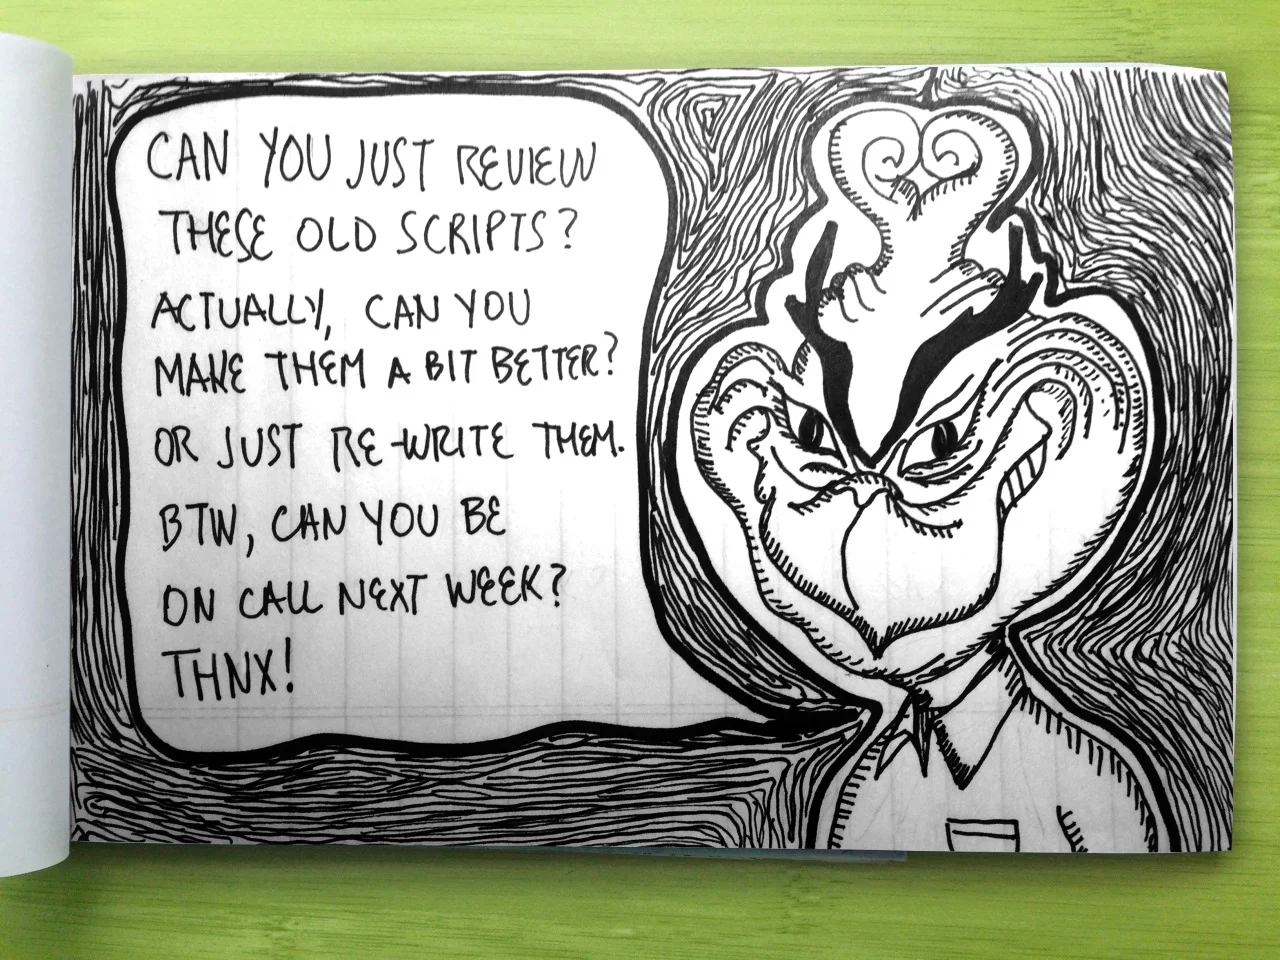 CAN YOU JUST REVIEW
THESE OLD SCRIPTS?
ACTUALLY, CAN YOU
MAKE THEM A BIT BETTER?
OR JUST RE-WRITE THEM.
BTW, CAN YOU BE
ON CALL NEXT WEEK?
THNX!